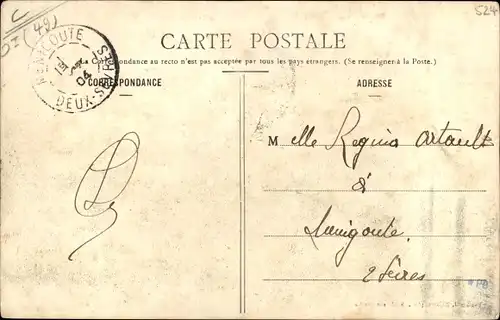 C
(49)
524
MENIGOUTE
04
DEUX-SÈVRES
CARTE POSTALE
La Correspondance au recto n'est pas acceptée par tous les pays étrangers. (Se renseigner à la Poste.)
CORRESPONDANCE
ADRESSE
Melle Regina Artault
à
Menigoute
2 Sèvres
*PB